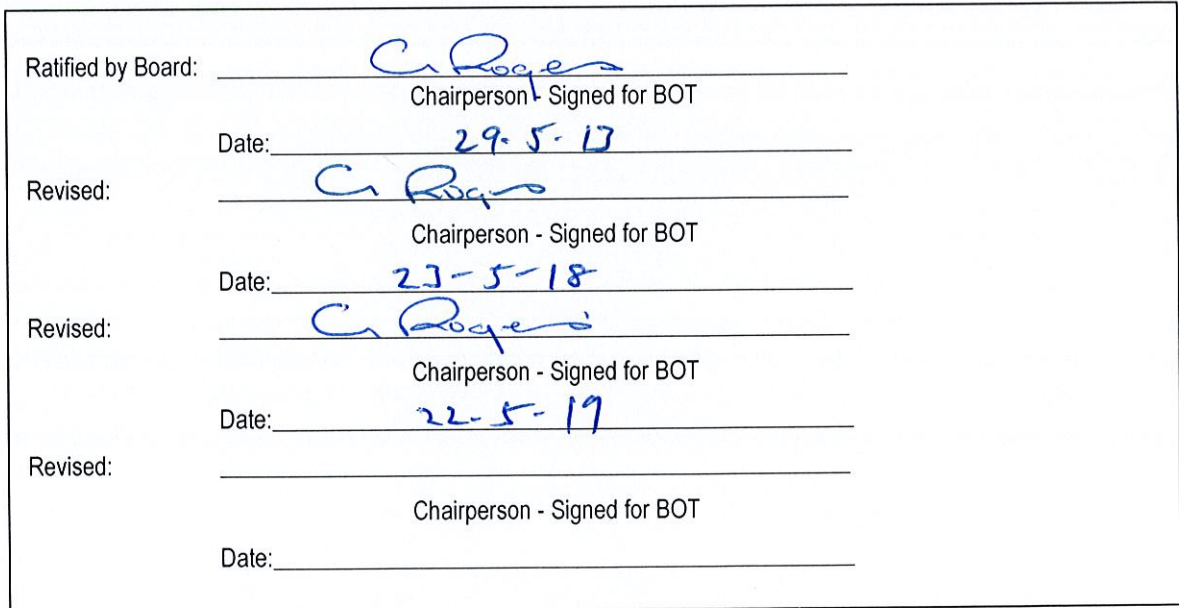 Ratified by Board: G Rogers
Chairperson - Signed for BOT
Date: 29-5-13
Revised: G Rogers
Chairperson - Signed for BOT
Date: 23-5-18
Revised: G Rogers
Chairperson - Signed for BOT
Date: 22-5-19
Revised:
Chairperson - Signed for BOT
Date: